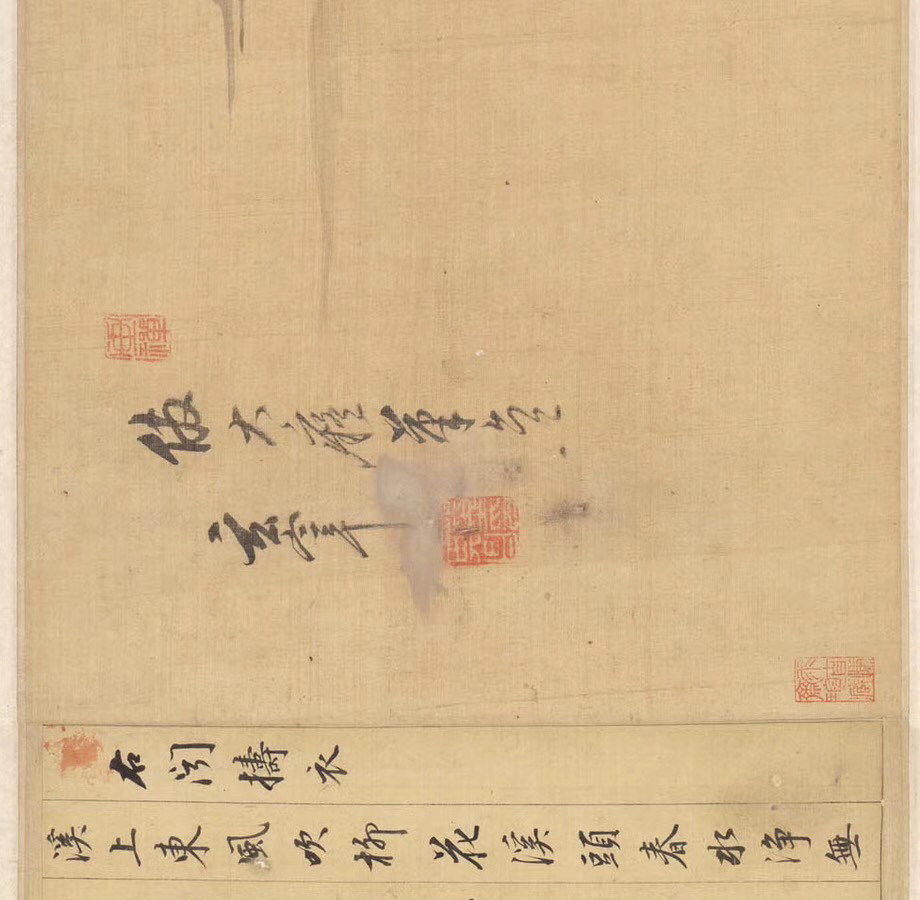 倣大癡筆意
玄宰
右聞擣衣
溪上東風吹柳花溪頭春水淨無